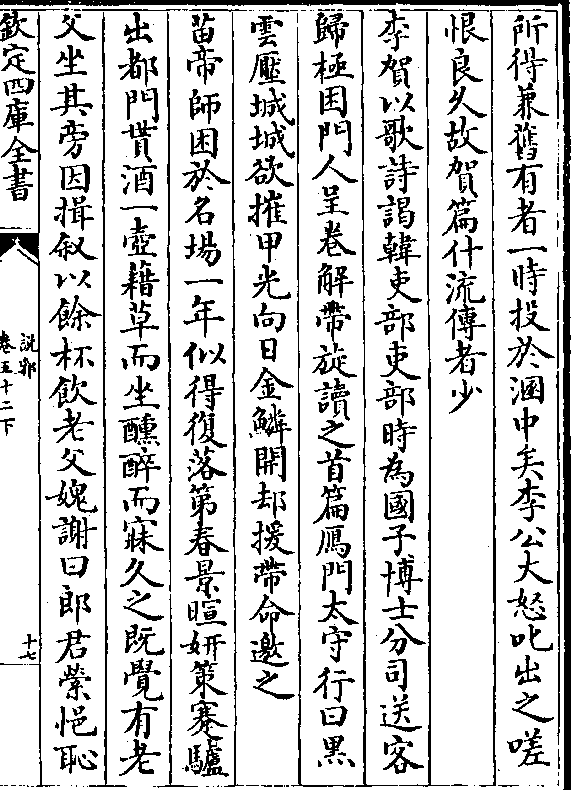 所得兼舊有者一時投於溷中矣李公大怒叱出之嗟
恨良久故賀篇什流傳者少
李賀以歌詩謁韓吏部吏部時為國子博士分司送客
歸極困門人呈卷解帶旋讀之首篇鴈門太守行曰黒
雲壓城城欲摧甲光向日金鱗開却援帶命邀之
苗帝師困於名場一年似得復落第春景暄妍策蹇驢
出都門貰酒一壺藉草而坐醺醉而寐久之既覺有老
父坐其旁因揖叙以餘杯飲老父媿謝曰郎君縈悒恥
欽定四庫全書
說郛
卷五十二下
十七